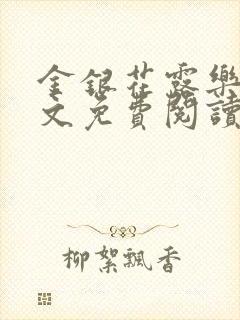 金银花露樂
文免費閱讀
柳絮飄香